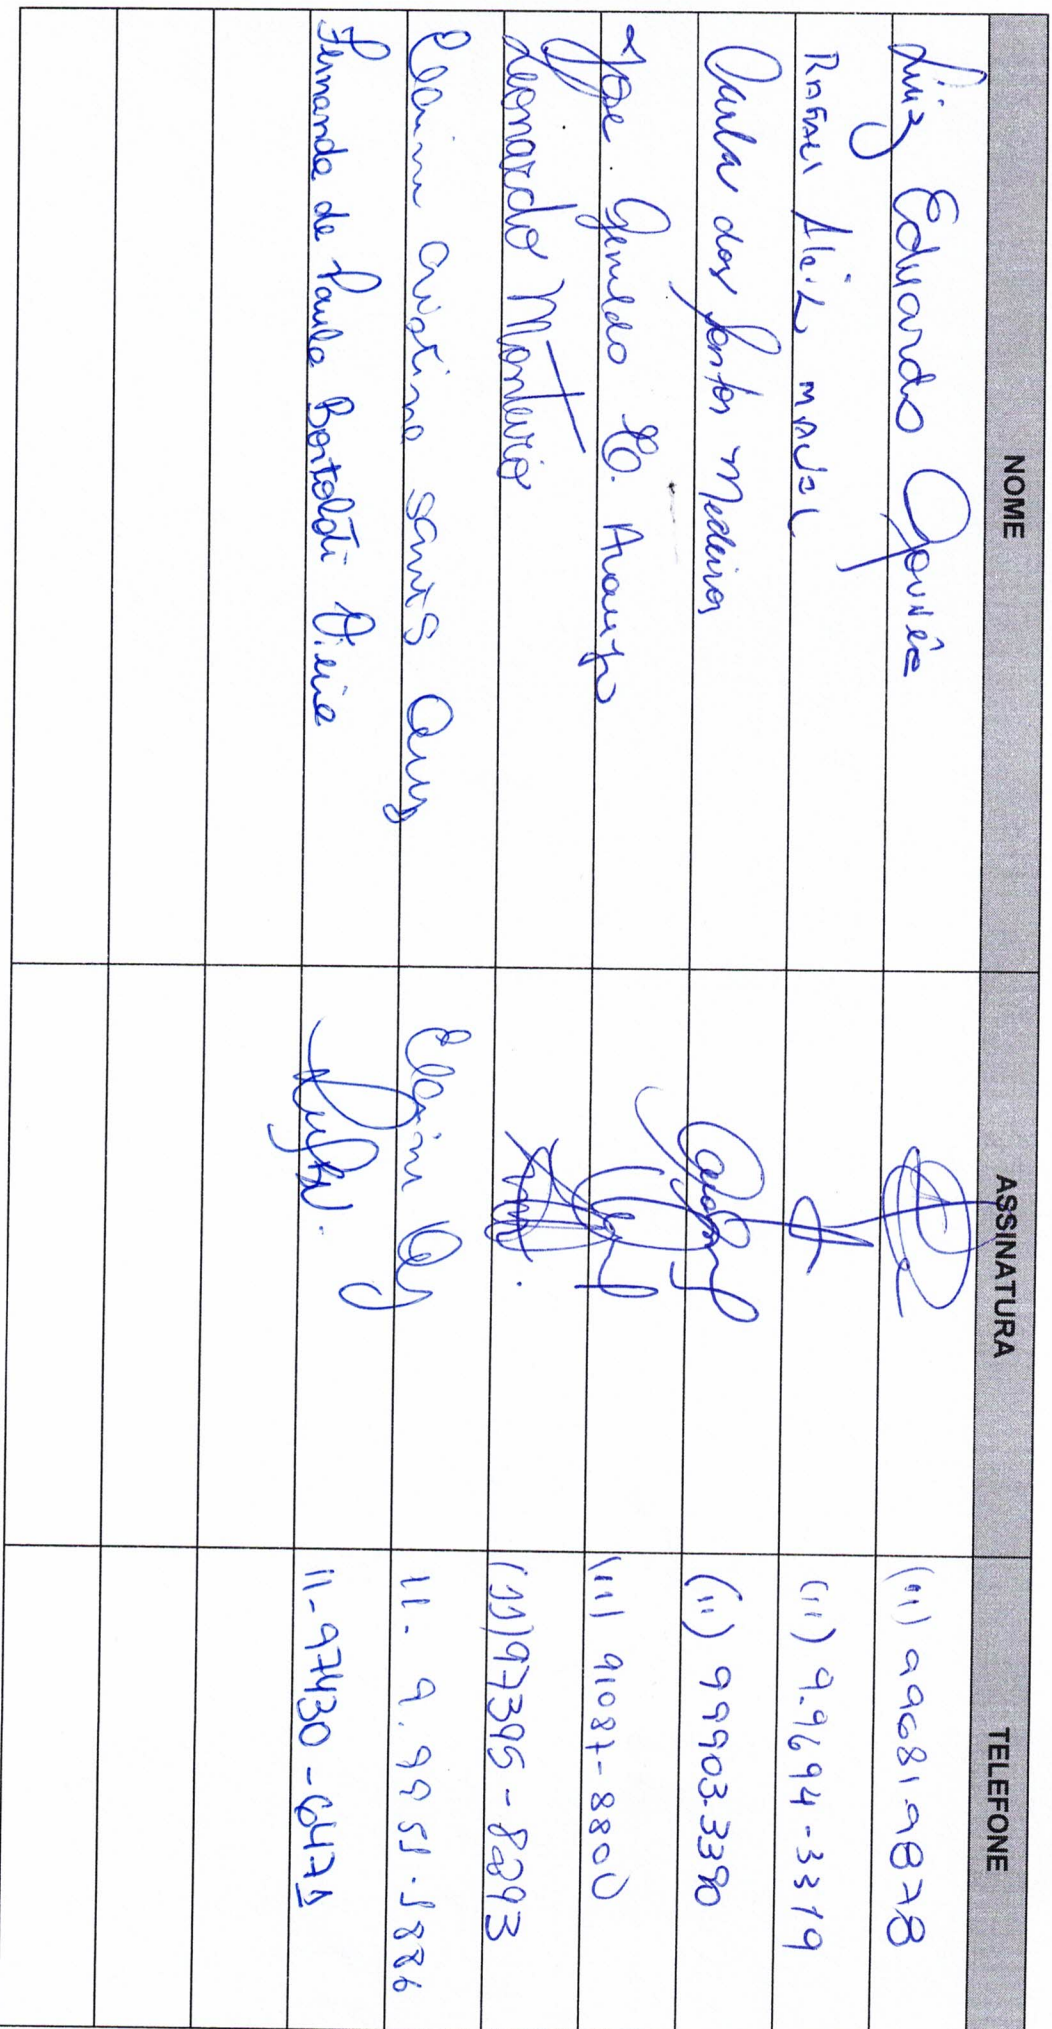 NOME ASSINATURA TELEFONE
Luiz Eduardo (11) 99681-9878
Rafael (11) 9.9694-3319
Paula dos Santos Medeiros (11) 99903-3390
José Genildo E. Araujo (11) 91087-8800
Leonardo Monteiro (11) 97395-8293
Elaine Cristina Santos Cruz Elaine Cruz 11-9.9951-5886
Fernanda de Paula Bortoloti Vieira 11-97430-6471